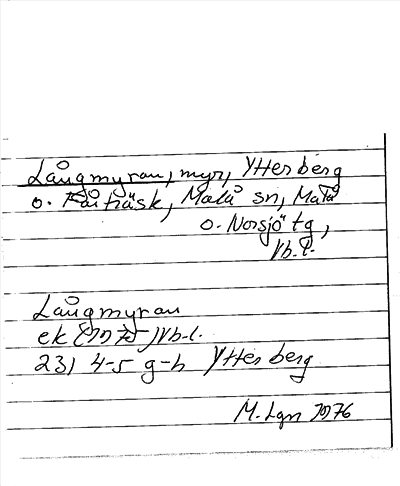 Långmyran, myr, Ytterberg
o. Råträsk, Malå sn, Malå
o. Norsjö tg,
Vb.l.
Långmyran
ek (1975) Vb-l.
23J 4-5 g-h Ytterberg
M. Lgn 1976